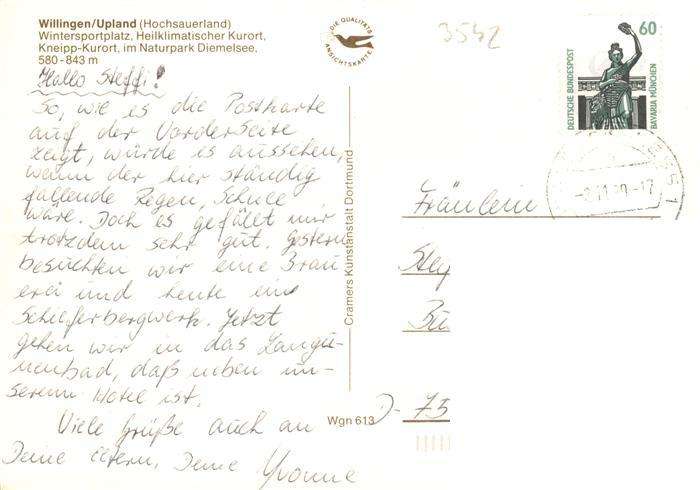 Willingen/Upland (Hochsauerland)
Wintersportplatz, Heilklimatischer Kurort,
Kneipp-Kurort, im Naturpark Diemelsee,
580-843 m
DIE QUALITÄTS
ANSICHTSKARTE
3542
60
DEUTSCHE BUNDESPOST
BAVARIA MÜNCHEN
Hallo Steffi!
So, wie es die Postkarte
auf der Vorderseite
zeigt, würde es aussehen,
wenn der hier ständig
fallende Regen, Schnee
wäre. Doch es gefällt mir
trotzdem sehr gut. Gestern
besuchten wir eine Brau
erei und heute ein
Schieferbergwerk. Jetzt
gehen wir in das Lagu-
nenbad, daß neben un-
serem Hotel ist.
Viele Grüße auch an
Deine Eltern, Deine Yvonne
Cramers Kunstanstalt Dortmund
Wgn 613
Fräulein
Bü
D- 75